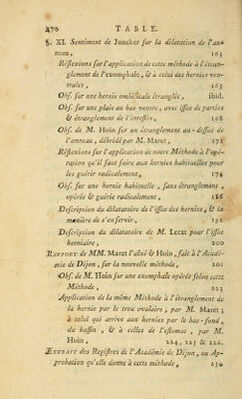 270 TABLE.
§. XI. Sentiment de Juncker sur la dilatation de l'an-
neau, 163
Réflexions sur l'application de cette méthode à l'étran-
glement de l'exomphale, & à celui des hernies ven-
trales, 165
Obs. sur une hernie ombilicale étranglée, ibid.
Obs. sur une plaie au bas ventre, avec issue de parties
& étranglement de l'intestin, 168
Obs. de M. Hoin sur un étranglement au-dessus de
l'anneau, débridé par M. Maret, 171
Réflexions sur l'application de notre Méthode à l'opé-
ration qu'il faut faire aux hernies habituelles pour
les guérir radicalement, 174
Obs. sur une hernie habituelle, sans étranglement,
opérée & guérie radicalement, 186
Description du dilatatoire de l'issue des hernies, & la
manière de s'en servir, 192
Description du dilatatoire de M. Lecat pour l'issue
herniaire, 200
Rapport de MM. Maret l'aîné & Hoin, fait à l'Acadé-
mie de Dijon, sur la nouvelle méthode, 201
Obs. de M. Hoin sur une exomphale opérée selon cette
Méthode, 223
Application de la même Méthode à l'étranglement de
la hernie par le trou ovalaire, par M. Maret;
à celui qui arrive aux hernies par le bas-fond,
du bassin, & à celles de l'estomac, par M.
Hoin, 224, 225 & 226.
Extrait des Registres de l'Académie de Dijon, ou Ap-
probation qu'elle donne à cette méthode, 230